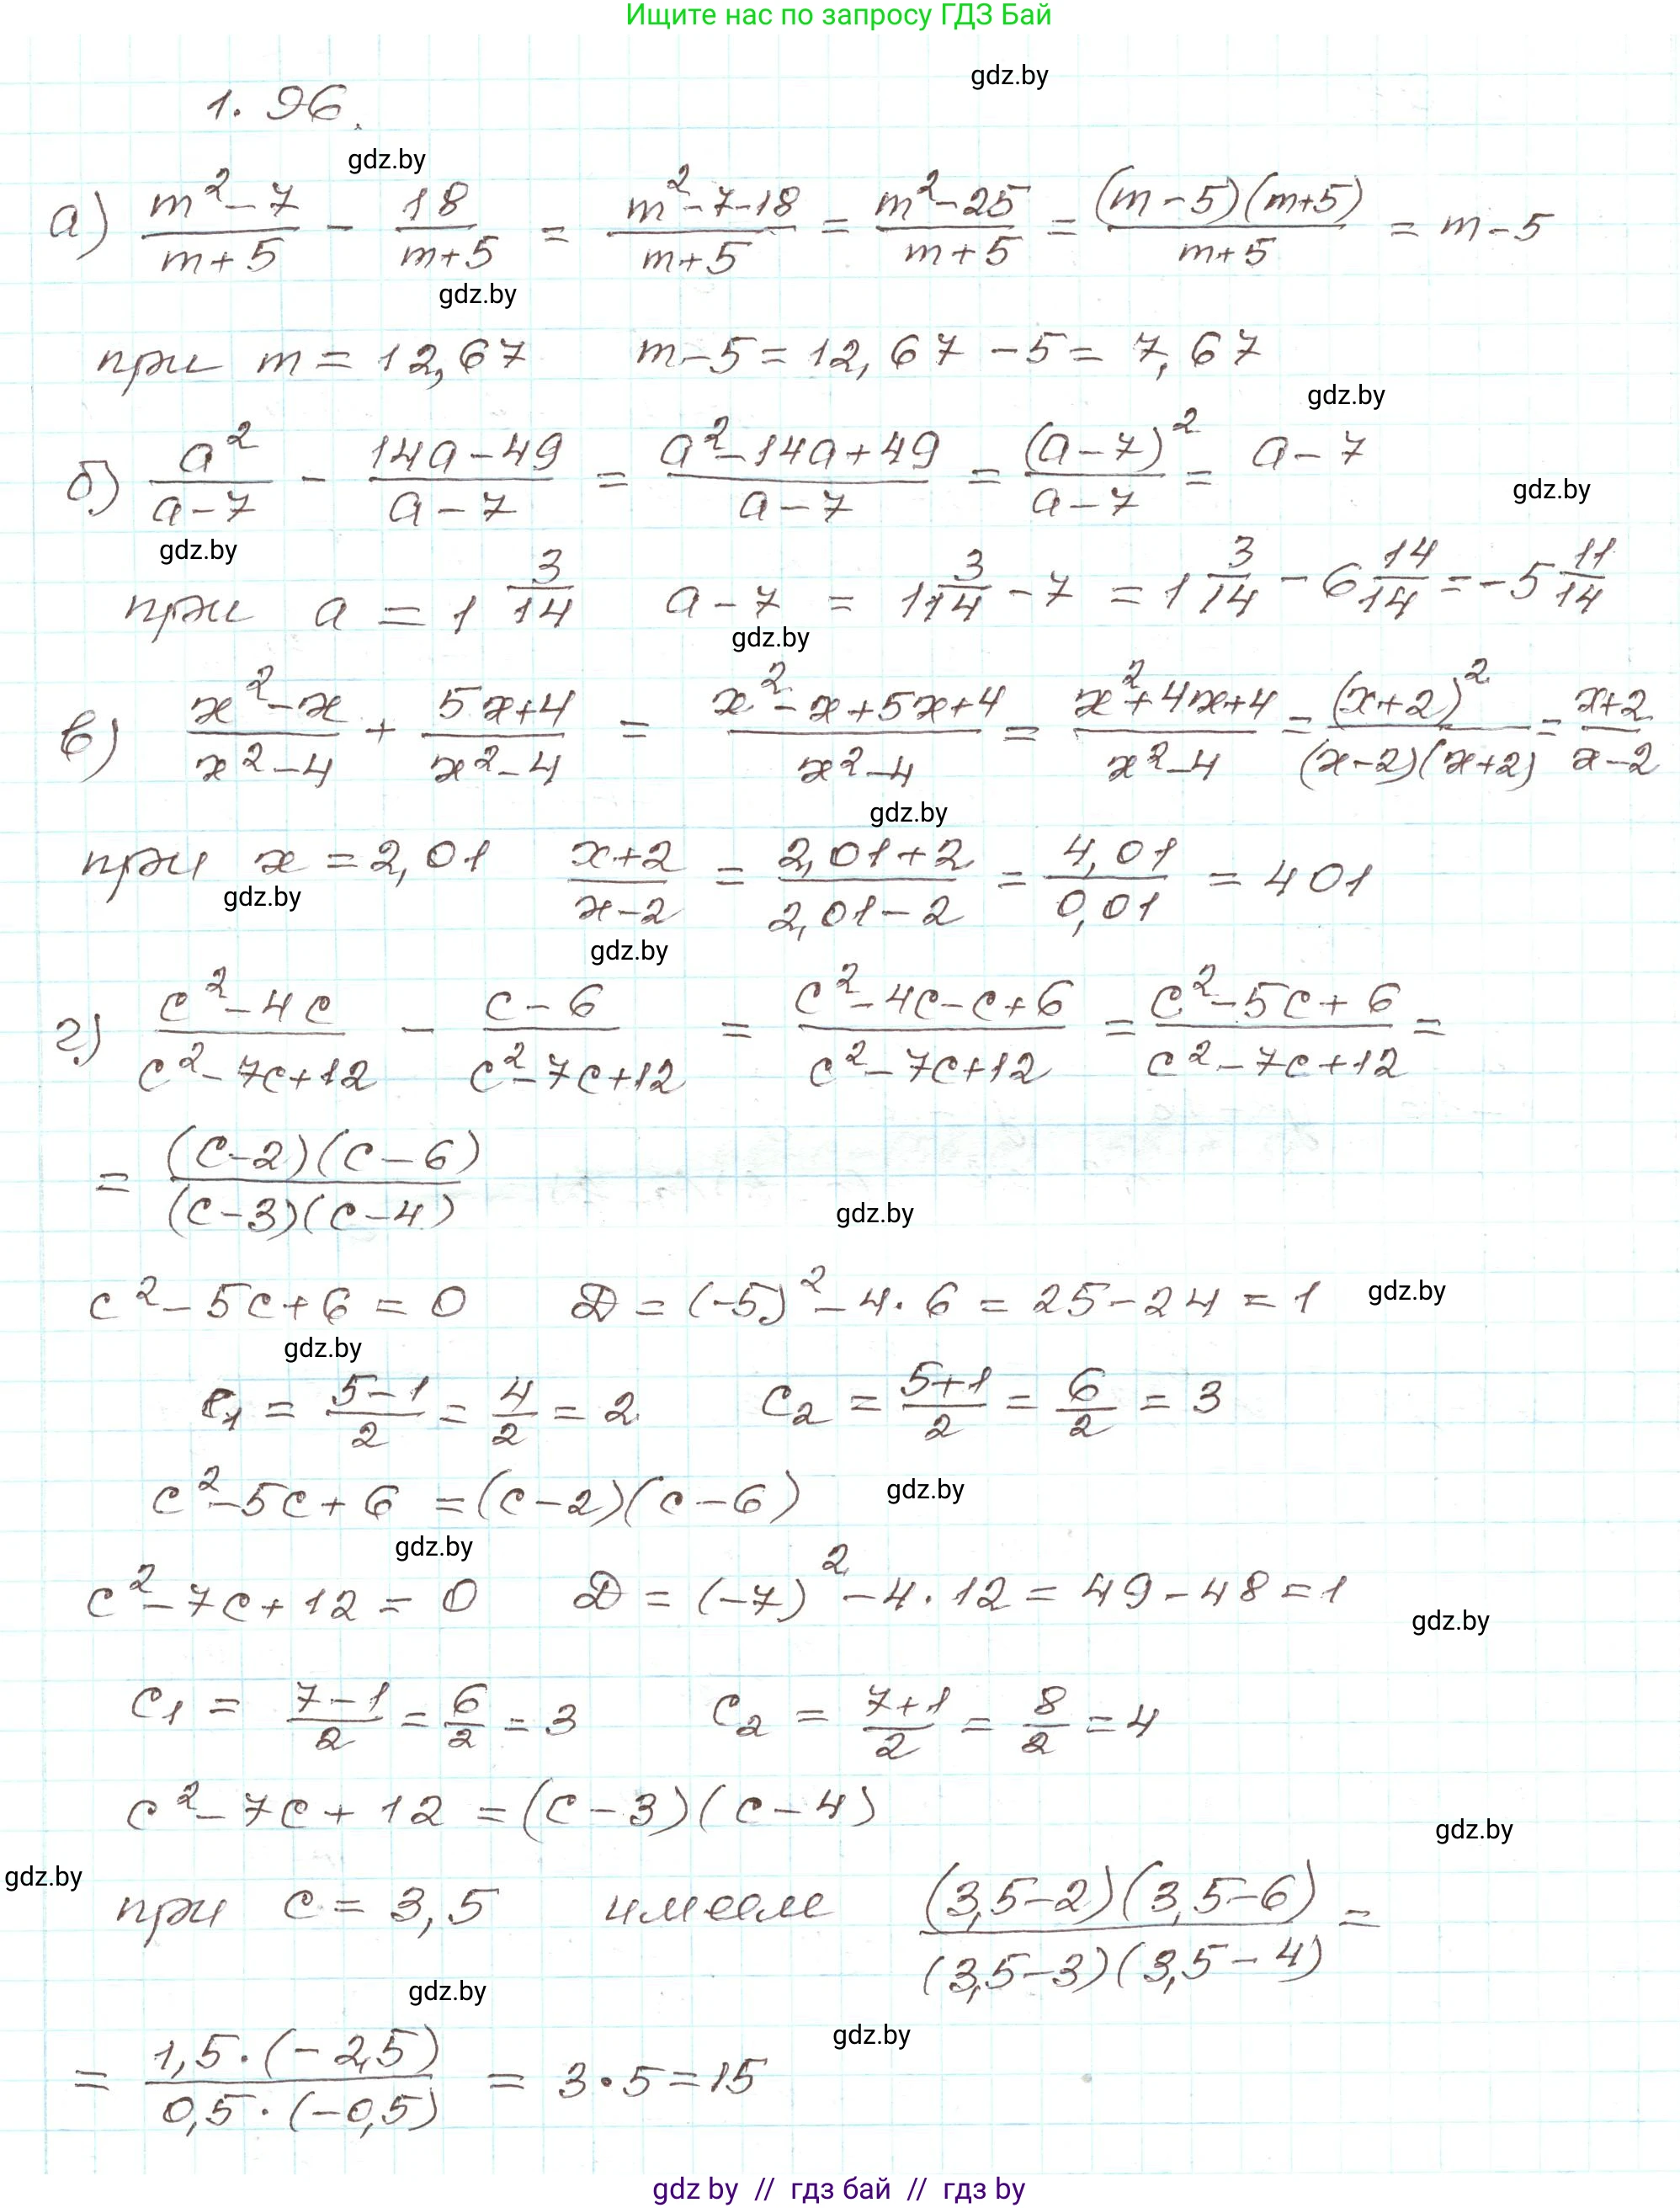 Ищите нас по запросу ГДЗ Бай
gdz.by
1.96.
gdz.by
а) (m²-7)/(m+5) - 18/(m+5) = (m²-7-18)/(m+5) = (m²-25)/(m+5) = ((m-5)(m+5))/(m+5) = m-5
gdz.by
при m = 12,67 m-5 = 12,67 -5 = 7,67
gdz.by
б) a²/(a-7) - (14a-49)/(a-7) = (a²-14a+49)/(a-7) = (a-7)²/(a-7) = a-7
gdz.by
gdz.by
при a = 1 3/14 a-7 = 1 3/14 - 7 = 1 3/14 - 6 14/14 = -5 11/14
gdz.by
в) (x²-x)/(x²-4) + (5x+4)/(x²-4) = (x²-x+5x+4)/(x²-4) = (x²+4x+4)/(x²-4) = (x+2)²/((x-2)(x+2)) = (x+2)/(x-2)
gdz.by
при x = 2,01 (x+2)/(x-2) = (2,01+2)/(2,01-2) = 4,01/0,01 = 401
gdz.by
gdz.by
г) (c²-4c)/(c²-7c+12) - (c-6)/(c²-7c+12) = (c²-4c-c+6)/(c²-7c+12) = (c²-5c+6)/(c²-7c+12) =
= ((c-2)(c-6))/((c-3)(c-4))
gdz.by
c²-5c+6 = 0 D = (-5)²-4·6 = 25-24 = 1
gdz.by
gdz.by
c₁ = (5-1)/2 = 4/2 = 2 c₂ = (5+1)/2 = 6/2 = 3
c²-5c+6 = (c-2)(c-6)
gdz.by
gdz.by
c²-7c+12 = 0 D = (-7)²-4·12 = 49-48 = 1
gdz.by
c₁ = (7-1)/2 = 6/2 = 3 c₂ = (7+1)/2 = 8/2 = 4
c²-7c+12 = (c-3)(c-4)
gdz.by
gdz.by
при c = 3,5 имеем ((3,5-2)(3,5-6))/((3,5-3)(3,5-4)) =
gdz.by
gdz.by
= (1,5·(-2,5))/(0,5·(-0,5)) = 3·5 = 15
gdz by // гдз бай // гдз by